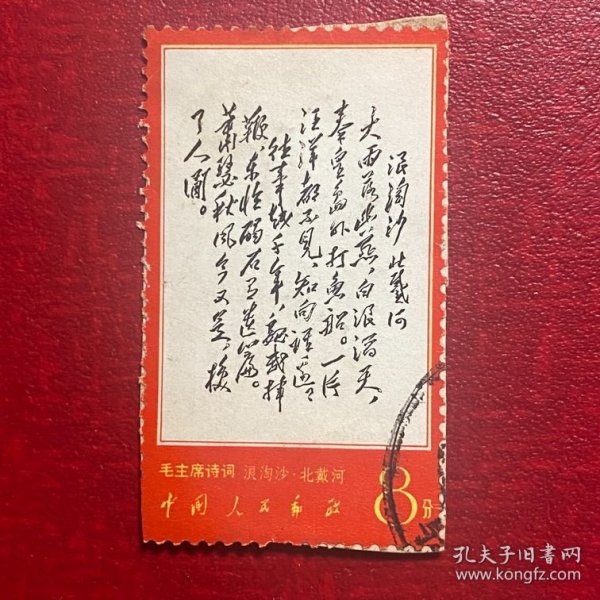 浪淘沙 北戴河
大雨落幽燕,白浪滔天,
秦皇岛外打鱼船。一片
汪洋都不见,知向谁边?
往事越千年,魏武挥
鞭,东临碣石有遗篇。
萧瑟秋风今又是,换
了人间。
毛主席诗词 浪淘沙·北戴河
中国人民邮政
8分
孔夫子旧书网
www.kongfz.com